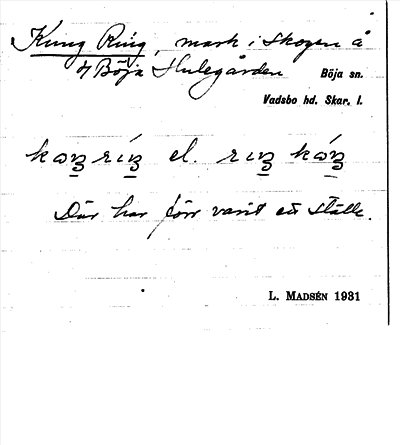 Kung Ring, mark i skogen å
Böja Hulegården
Böja sn.
Vadsbo hd. Skar. l.
el.
Där har förr varit ett ställe.
L. MADSÉN 1931